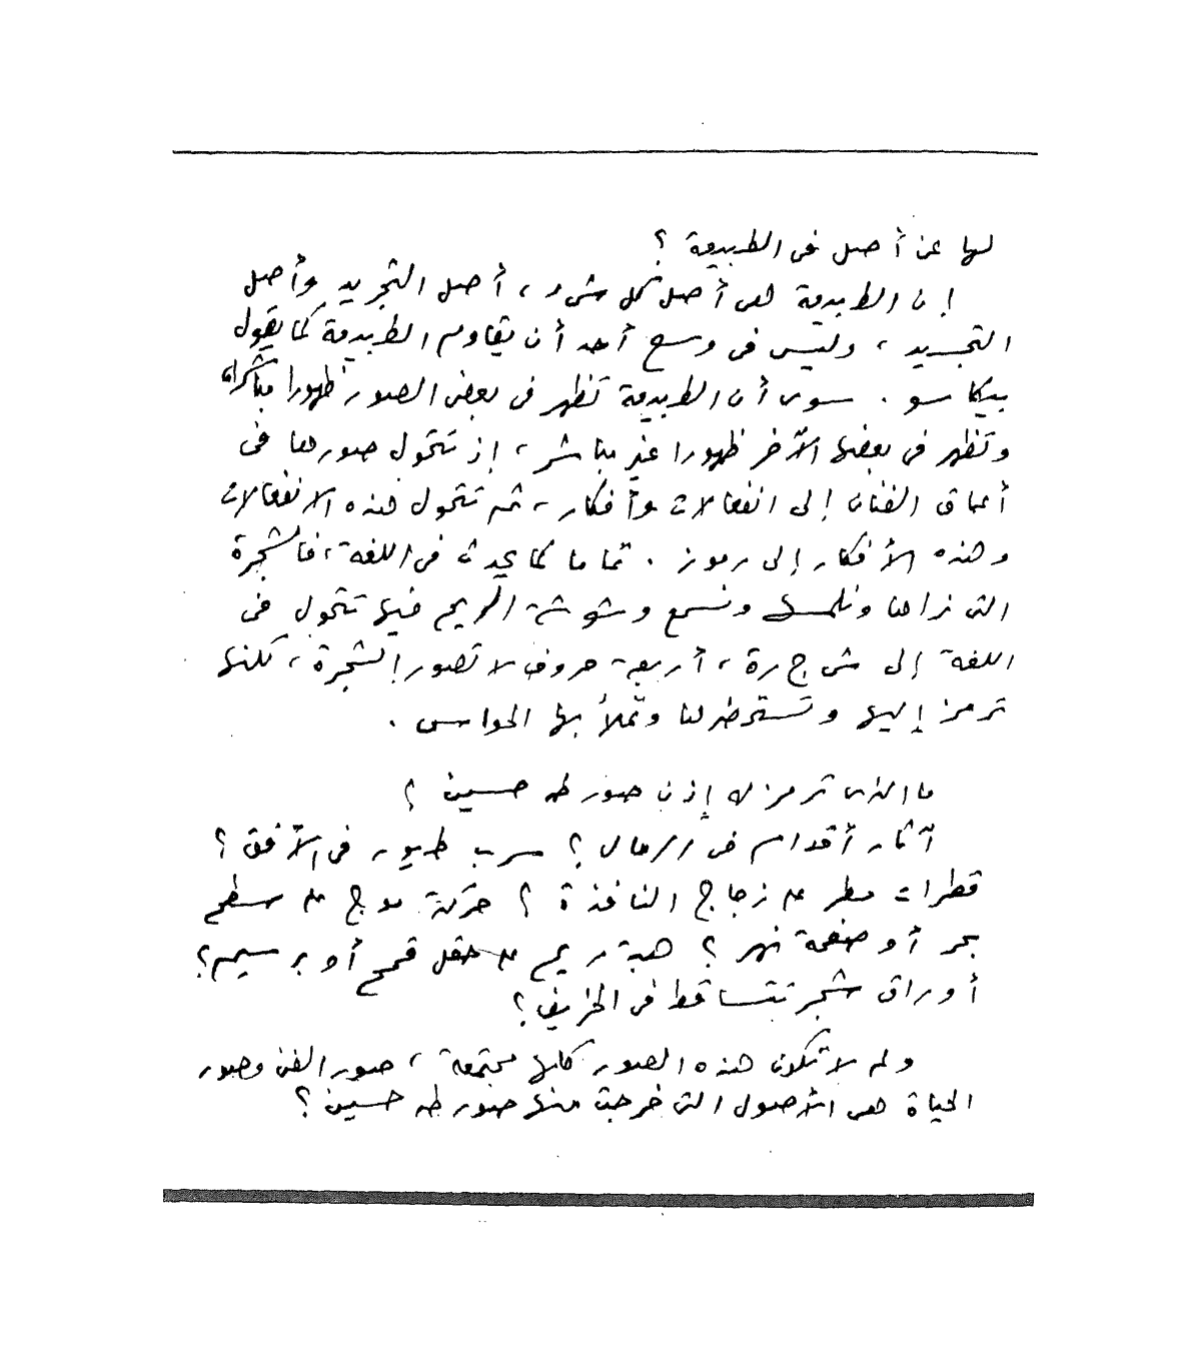 لها عن أصل فى الطبيعة ؟
إن الطبيعة هى أصل كل شىء ، أصل التجريد وأصل
التجسيد ، وليس فى وسع أحد أن يقاوم الطبيعة كما يقول
بيكاسو . سوى أن الطبيعة تظهر فى بعض الصور ظهورا مباشرا ،
وتظهر فى بعضها الآخر ظهورا غير مباشر ، إذ تتحول صورها فى
أعماق الفنان إلى انفعالات وأفكار ، ثم تتحول هذه الانفعالات
وهذه الأفكار إلى رموز . تماما كما يحدث فى اللغة ، فالشجرة
التى نراها ونلمسها ونسمع وشوشة الريح فيها تتحول فى
اللغة إلى ش ج ر ة ، أربعة حروف لا تصور الشجرة ، لكنها
ترمز إليها وتستحضر لنا وتملأ بها الحواس .
ما الذى ترمز له إذن صور طه حسين ؟
آثار أقدام فى الرمال ؟ سرب طيور فى الأفق ؟
قطرات مطر على زجاج النافذة ؟ حركة موج على سطح
بحر أو صفحة نهر ؟ هبة ريح على حقل قمح أو برسيم ؟
أوراق شجر تتساقط فى الخريف ؟
ولم لا تكون هذه الصور كلها مجتمعة ، صور الفن وصور
الحياة هى الأصول التى خرجت منها صور طه حسين ؟